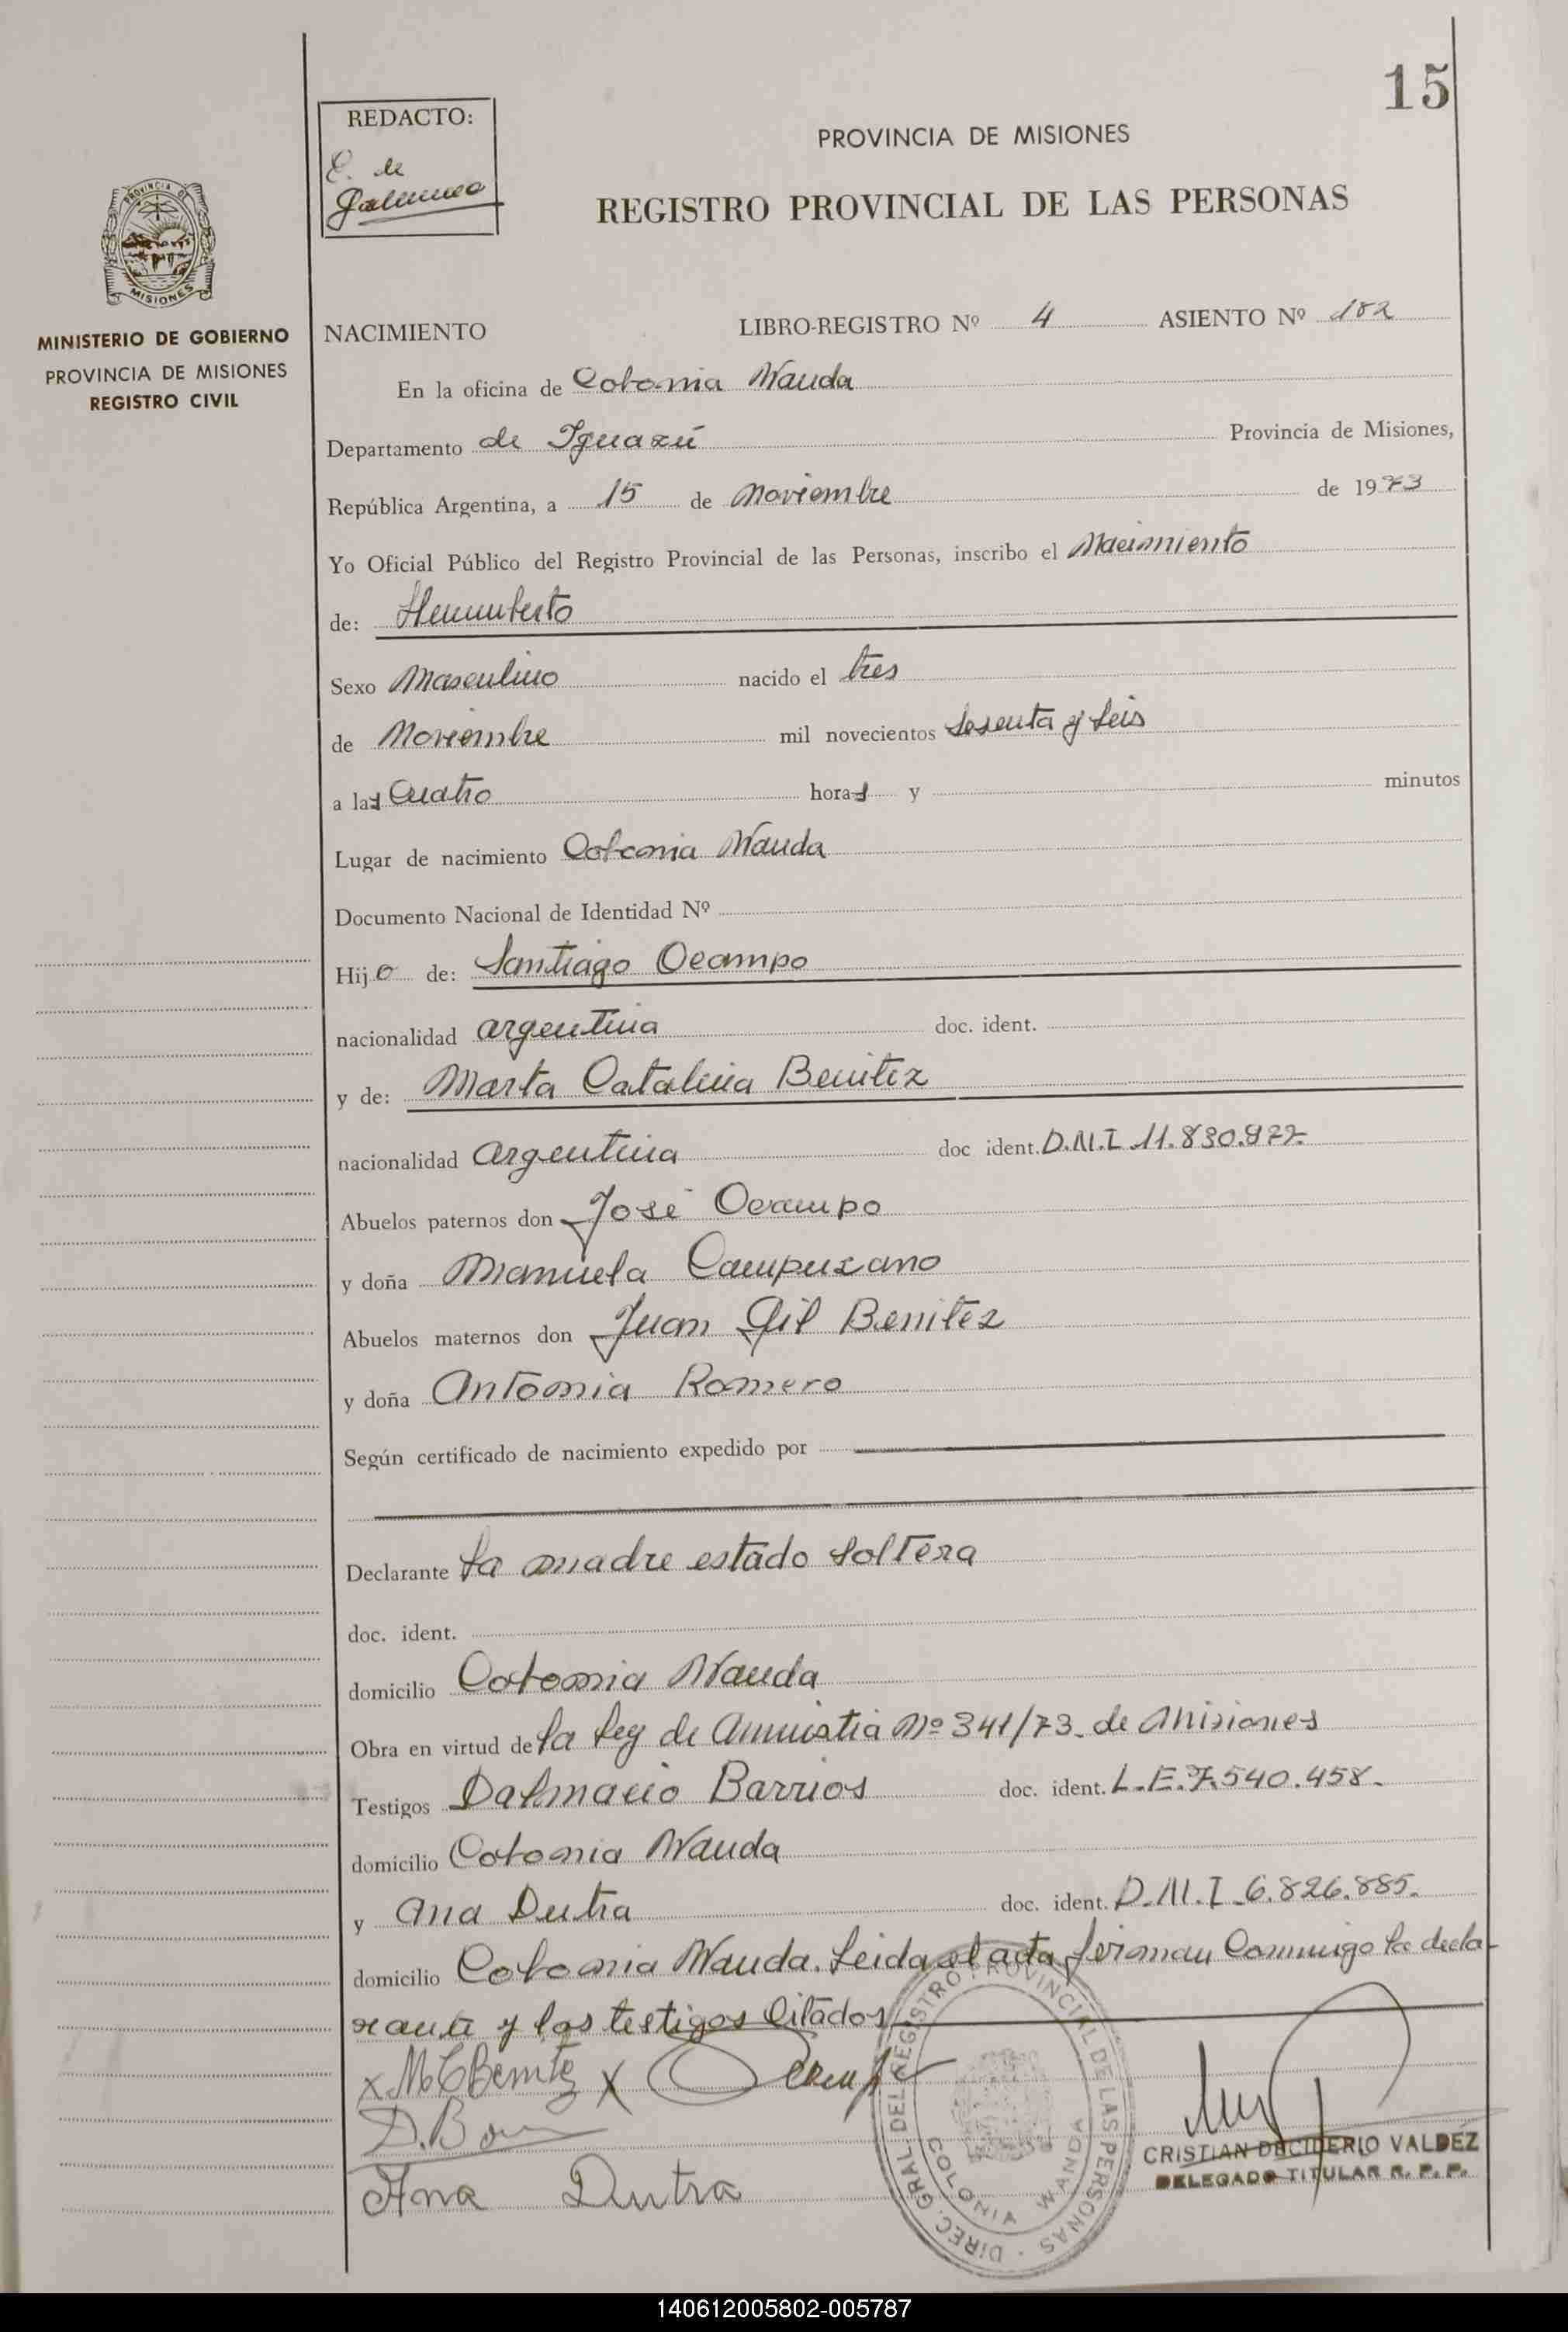 15
REDACTO:
E. de
PROVINCIA DE MISIONES
REGISTRO PROVINCIAL DE LAS PERSONAS
PROVINCIA DE
MISIONES
MINISTERIO DE GOBIERNO
PROVINCIA DE MISIONES
REGISTRO CIVIL
NACIMIENTO LIBRO-REGISTRO Nº 4 ASIENTO Nº 182
En la oficina de Colonia Wanda
Departamento de Iguazú Provincia de Misiones,
República Argentina, a 15 de Noviembre de 1973
Yo Oficial Público del Registro Provincial de las Personas, inscribo el Nacimiento
de: Hemumberto
Sexo Masculino nacido el tres
de Noviembre mil novecientos sesenta y seis
a las Cuatro horas y minutos
Lugar de nacimiento Colonia Wanda
Documento Nacional de Identidad Nº
Hijo de: Santiago Ocampo
nacionalidad argentina doc. ident.
y de: Marta Catalina Benitez
nacionalidad argentina doc ident. D.N.I 11.830.977-
Abuelos paternos don José Ocampo
y doña Manuela Campuzano
Abuelos maternos don Juan Gil Benitez
y doña Antonia Romero
Según certificado de nacimiento expedido por
Declarante La madre estado soltera
doc. ident.
domicilio Colonia Wanda
Obra en virtud de la Ley de Amnistia Nº 341/73 de Misiones
Testigos Dalmacio Barrios doc. ident. L.E.7.540.458-
domicilio Colonia Wanda
y Ana Dutra doc. ident. D.N.I 6.826.885.
domicilio Colonia Wanda. Leida el acta firman Conmigo la decla-
rante y los testigos Citados
x M C Benitez x Ocampo
D. Bar
Ana Dutra
DIREC. GRAL DEL REGISTRO PROVINCIAL DE LAS PERSONAS
COLONIA WANDA
CRISTIAN DECIDERIO VALDEZ
DELEGADO TITULAR R. P. P.
140612005802-005787